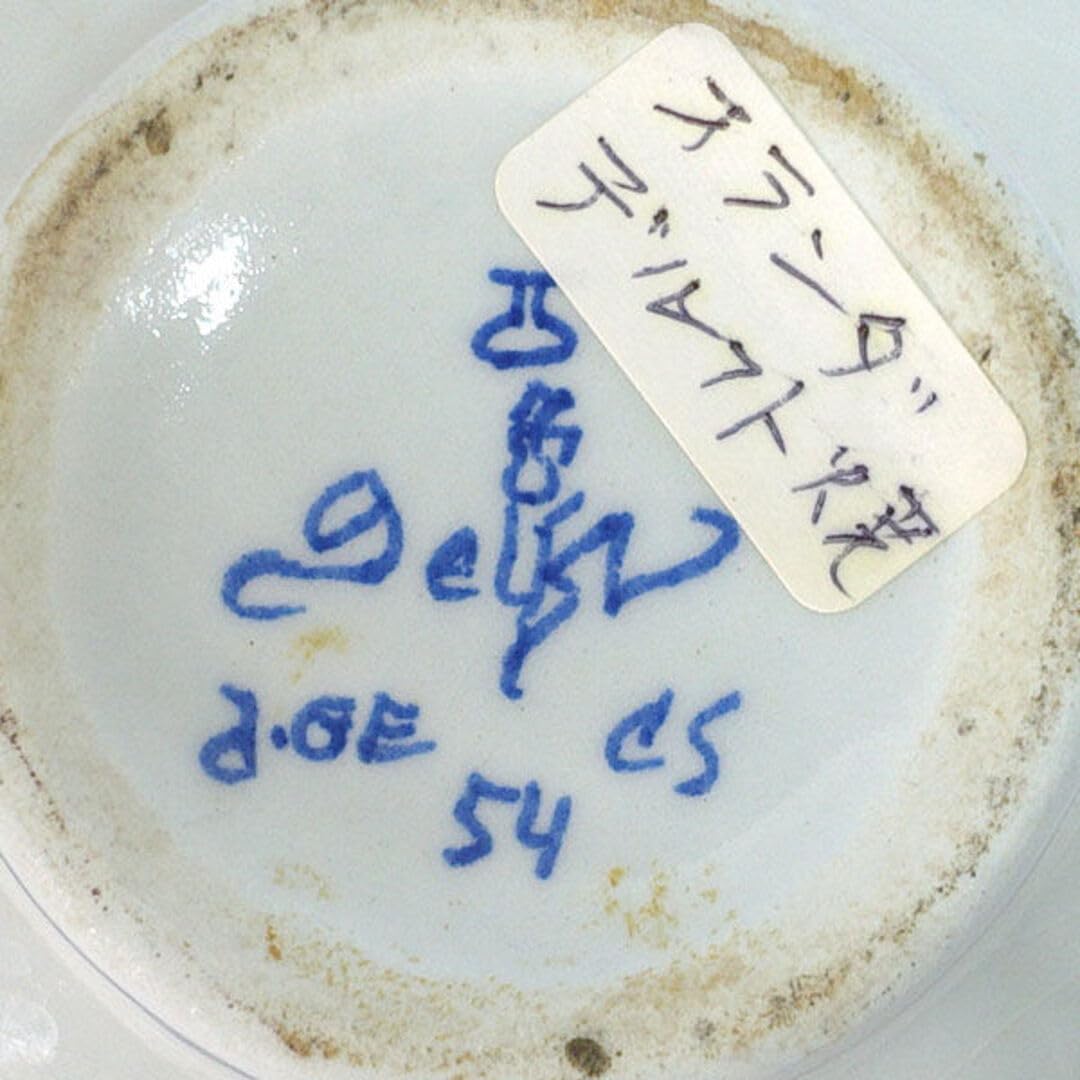 オランダ
デルフト焼
Delft
d.GE
CS
54